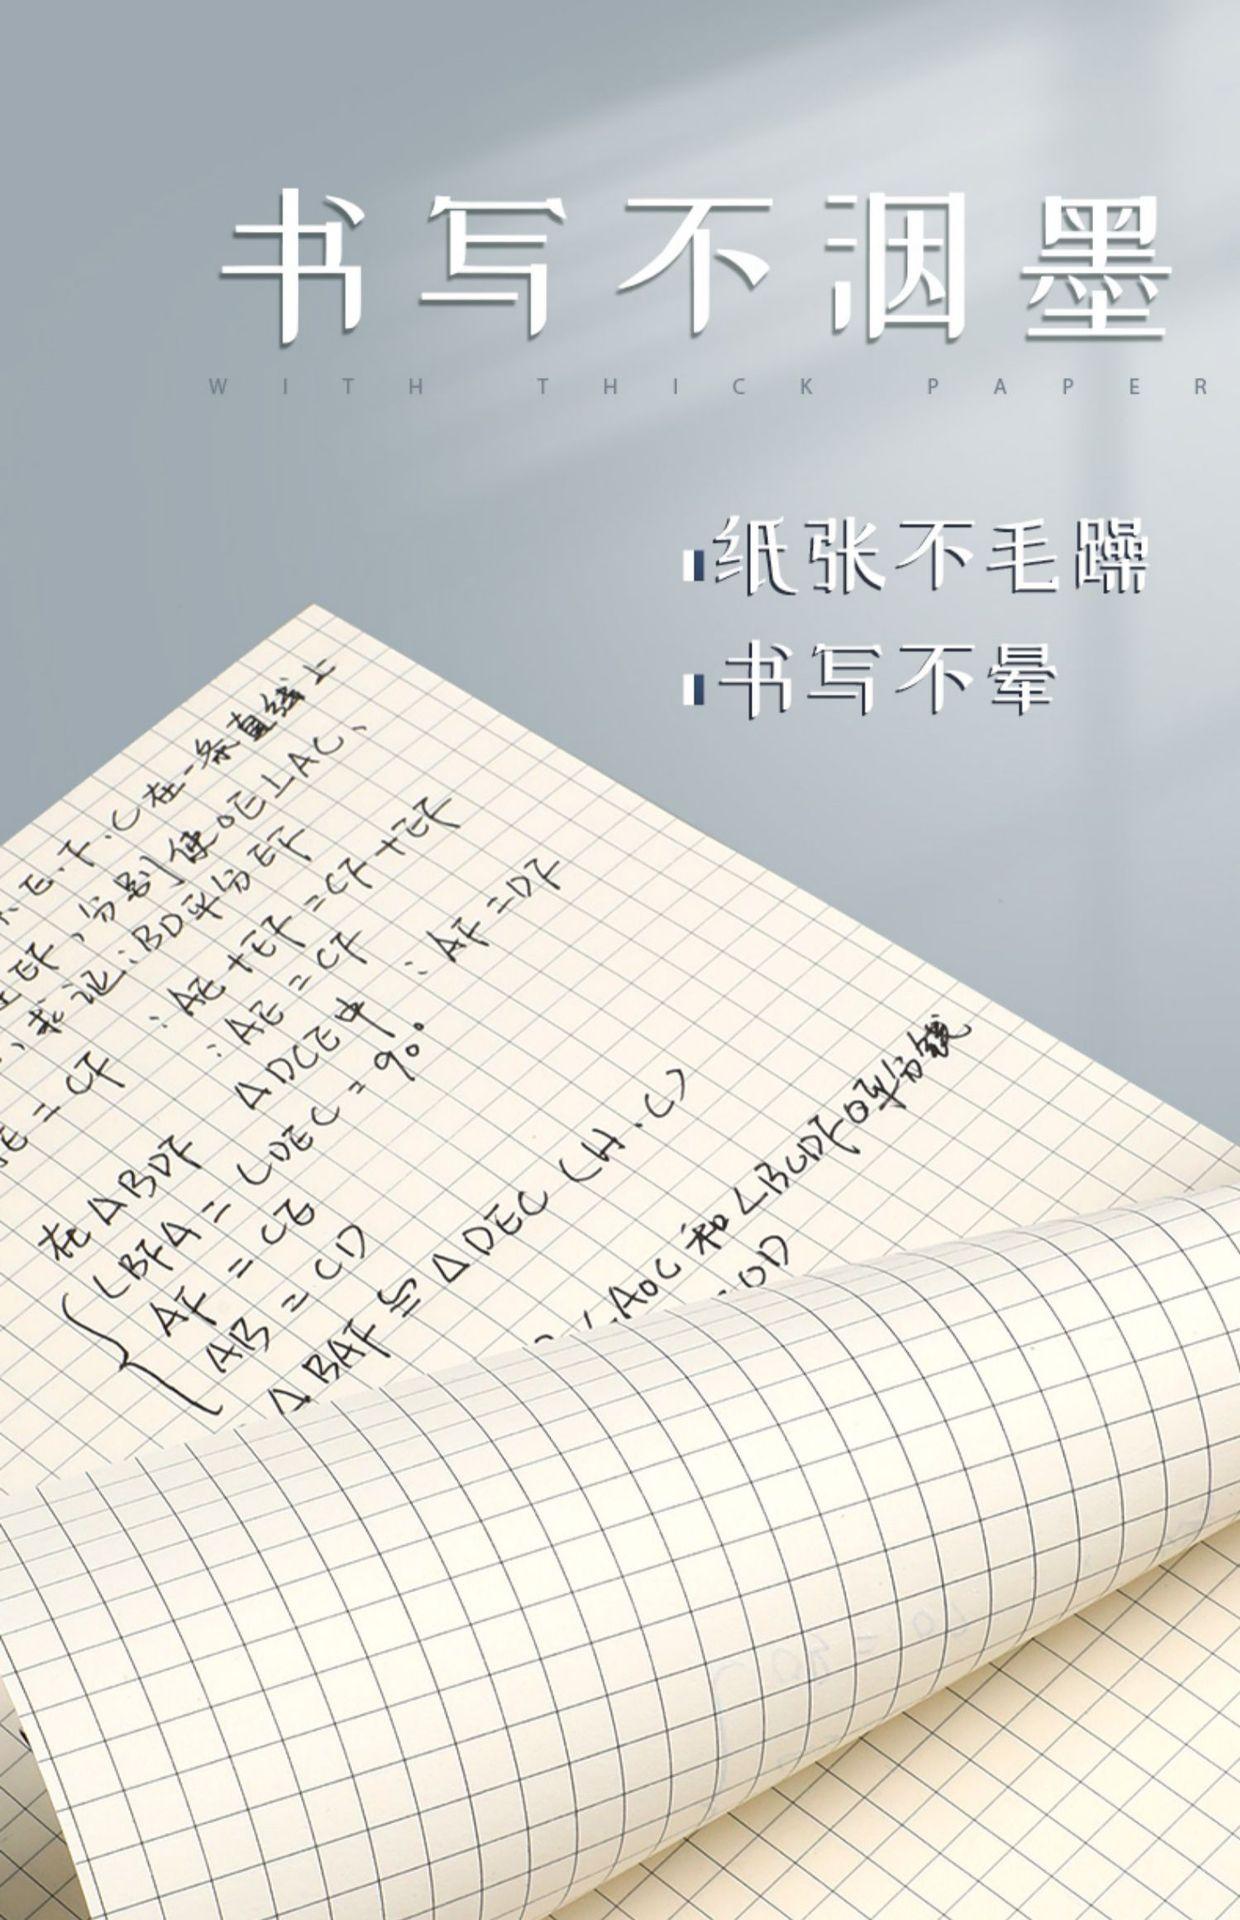 书写不洇墨
WITH THICK PAPER
纸张不毛躁
书写不晕
E.F.C在一条直线上
分别使OE⊥AC、
求证:BD平分EF
=CF ∴AE+EF=CF+EF
∴AE=CF ∴AF=DF
在△BDF △DCE中
∠BFA=∠DEC=90
AF=CE
AB=CD
△BAF≌△DEC(H.L)
∠AOC和∠BODF平分线
OD